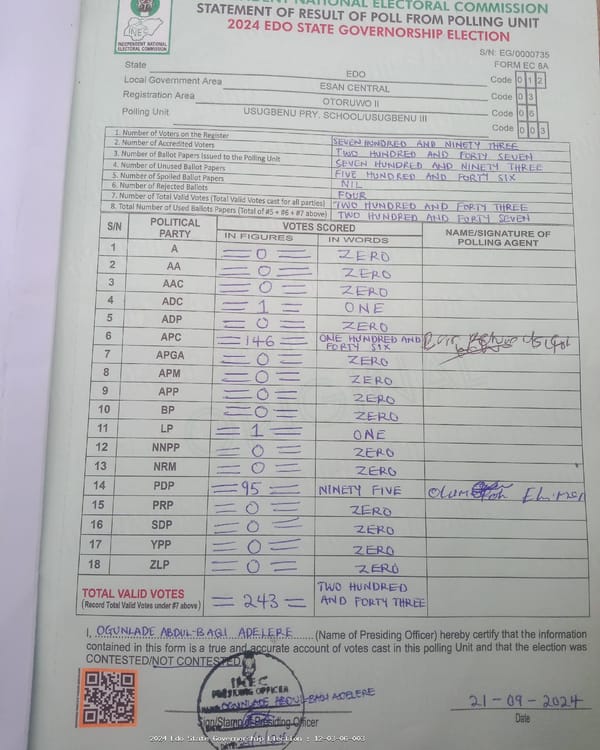 INDEPENDENT NATIONAL ELECTORAL COMMISSION
STATEMENT OF RESULT OF POLL FROM POLLING UNIT
2024 EDO STATE GOVERNORSHIP ELECTION
INEC
INDEPENDENT NATIONAL
ELECTORAL COMMISSION
S/N: EG/0000735
FORM EC 8A
State EDO Code 0 1 2
Local Government Area ESAN CENTRAL Code 0 3
Registration Area OTORUWO II Code 0 6
Polling Unit USUGBENU PRY. SCHOOL/USUGBENU III Code 0 0 3
1. Number of Voters on the Register SEVEN HUNDRED AND NINETY THREE
2. Number of Accredited Voters TWO HUNDRED AND FORTY SEVEN
3. Number of Ballot Papers Issued to the Polling Unit SEVEN HUNDRED AND NINETY THREE
4. Number of Unused Ballot Papers FIVE HUNDRED AND FORTY SIX
5. Number of Spoiled Ballot Papers NIL
6. Number of Rejected Ballots FOUR
7. Number of Total Valid Votes (Total Valid Votes cast for all parties) TWO HUNDRED AND FORTY THREE
8. Total Number of Used Ballots Papers (Total of #5 + #6 + #7 above) TWO HUNDRED AND FORTY SEVEN
S/N POLITICAL PARTY VOTES SCORED NAME/SIGNATURE OF POLLING AGENT
IN FIGURES IN WORDS
1 A 0 ZERO
2 AA 0 ZERO
3 AAC 0 ZERO
4 ADC 1 ONE
5 ADP 0 ZERO
6 APC 146 ONE HUNDRED AND FORTY SIX
7 APGA 0 ZERO
8 APM 0 ZERO
9 APP 0 ZERO
10 BP 0 ZERO
11 LP 1 ONE
12 NNPP 0 ZERO
13 NRM 0 ZERO
14 PDP 95 NINETY FIVE
15 PRP 0 ZERO
16 SDP 0 ZERO
17 YPP 0 ZERO
18 ZLP 0 ZERO
TOTAL VALID VOTES 243 TWO HUNDRED AND FORTY THREE
(Record Total Valid Votes under #7 above)
I, OGUNLADE ABDUL-BAQI ADELERE (Name of Presiding Officer) hereby certify that the information
contained in this form is a true and accurate account of votes cast in this polling Unit and that the election was
CONTESTED/NOT CONTESTED.
INEC
PRESIDING OFFICER
OGUNLADE ABDUL-BAQI ADELERE
Sign/Stamp of Presiding Officer
21-09-2024
Date
2024 Edo State Governorship Election : 12-03-06-003